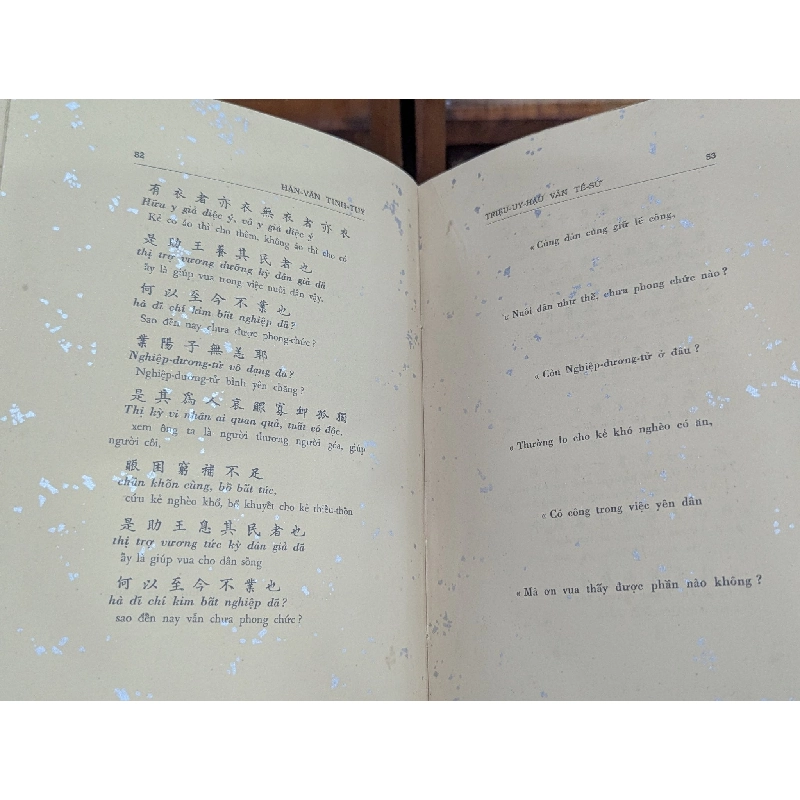 82
HÁN-VĂN TINH-TUÝ
有衣者亦衣無衣者亦衣
Hữu y giả diệc ý, vô y giả diệc ý
Kẻ có áo thì cho thêm, không áo thì cho có
是助王養其民者也
thị trợ vương dưỡng kỳ dân giả dã
ấy là giúp vua trong việc nuôi dân vậy.
何以至今不業也
hà dĩ chí kim bất nghiệp dã?
Sao đến nay chưa được phong-chức?
葉陽子無恙耶
Nghiệp-dương-tử vô dạng da?
Nghiệp-dương-tử bình yên chăng?
是其爲人哀眼寡卹孤獨
Thị kỳ vi nhân ai quan quả, tuất cô độc,
xem ông ta là người thương người góa, giúp
người côi,
眼困窮補不足
chẩn khốn cùng, bổ bất túc,
cứu kẻ nghèo khổ, bổ khuyết cho kẻ thiếu-thốn
是助王息其民者也
thị trợ vương tức kỳ dân giả dã
ấy là giúp vua cho dân sống
何以至今不業也
hà dĩ chí kim bất nghiệp dã?
sao đến nay vẫn chưa phong chức?
83
TRIỆU-UY-HẬU VẤN TỀ-SỨ
« Cùng dân cùng giữ lẽ công,
« Nuôi dân như thế, chưa phong chức nào?
« Còn Nghiệp-dương-tử ở đâu?
« Thường lo cho kẻ khó nghèo có ăn,
« Có công trong việc yên dân
« Mà ơn vua thấy được phần nào không?